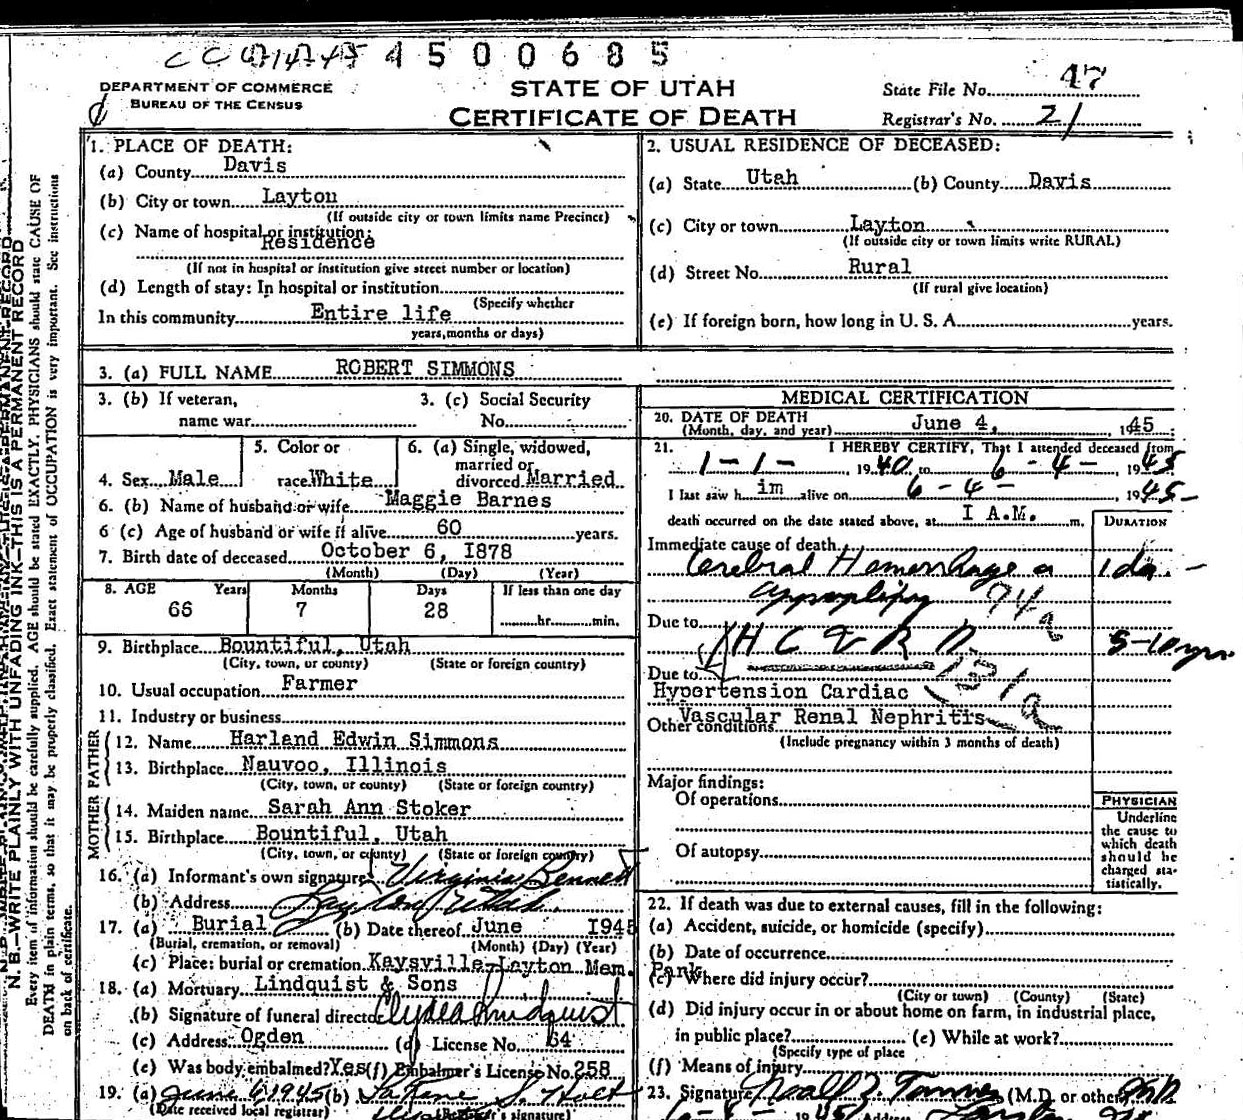 4500685
DEPARTMENT OF COMMERCE
BUREAU OF THE CENSUS
STATE OF UTAH
CERTIFICATE OF DEATH
State File No. 47
Registrar's No. 21
N. B.—WRITE PLAINLY WITH UNFADING INK—THIS IS A PERMANENT RECORD
Every item of information should be carefully supplied. AGE should be stated EXACTLY. PHYSICIANS should state CAUSE OF
DEATH in plain terms, so that it may be properly classified. Exact statement of OCCUPATION is very important. See instructions
on back of certificate.
1. PLACE OF DEATH:
(a) County Davis
(b) City or town Layton
(If outside city or town limits name Precinct)
(c) Name of hospital or institution:
Residence
(If not in hospital or institution give street number or location)
(d) Length of stay: In hospital or institution
(Specify whether
In this community Entire life
years, months or days)
2. USUAL RESIDENCE OF DECEASED:
(a) State Utah (b) County Davis
(c) City or town Layton
(If outside city or town limits write RURAL)
(d) Street No. Rural
(If rural give location)
(e) If foreign born, how long in U. S. A. years.
3. (a) FULL NAME ROBERT SIMMONS
3. (b) If veteran, name war
3. (c) Social Security No.
4. Sex Male
5. Color or race White
6. (a) Single, widowed, married or divorced Married
6. (b) Name of husband or wife Maggie Barnes
6 (c) Age of husband or wife if alive 60 years.
7. Birth date of deceased October 6, I878
(Month) (Day) (Year)
8. AGE Years Months Days If less than one day
66 7 28 hr. min.
9. Birthplace Bountiful, Utah
(City, town, or county) (State or foreign country)
10. Usual occupation Farmer
11. Industry or business
FATHER
12. Name Harland Edwin Simmons
13. Birthplace Nauvoo, Illinois
(City, town, or county) (State or foreign country)
MOTHER
14. Maiden name Sarah Ann Stoker
15. Birthplace Bountiful, Utah
(City, town, or county) (State or foreign country)
16. (a) Informant's own signature Virginia Bennett
(b) Address Layton, Utah.
17. (a) Burial (b) Date thereof June I945
(Burial, cremation, or removal) (Month) (Day) (Year)
(c) Place: burial or cremation Kaysville-Layton Mem. Park
18. (a) Mortuary Lindquist & Sons
(b) Signature of funeral director Clyde Lindquist
(c) Address Ogden (d) License No. 64
(e) Was body embalmed? Yes (f) Embalmer's License No. 258
19. (a) June 6, 1945 (b) S. Holt
(Date received local registrar) (Registrar's signature)
MEDICAL CERTIFICATION
20. DATE OF DEATH June 4, 1945
(Month, day, and year)
21. I HEREBY CERTIFY, That I attended deceased from
1-1- 1940 to 6-4- 1945
I last saw h im alive on 6-4- 1945
death occurred on the date stated above, at I A.M. m.
DURATION
Immediate cause of death
Cerebral Hemorrhage 1 da.
94a
Due to
H C V R D 5-10 yrs
Due to 131a
Hypertension Cardiac
Vascular Renal Nephritis
Other conditions
(Include pregnancy within 3 months of death)
Major findings:
Of operations
Of autopsy
PHYSICIAN
Underline
the cause to
which death
should be
charged sta-
tistically.
22. If death was due to external causes, fill in the following:
(a) Accident, suicide, or homicide (specify)
(b) Date of occurrence
(c) Where did injury occur?
(City or town) (County) (State)
(d) Did injury occur in or about home on farm, in industrial place,
in public place? (e) While at work?
(Specify type of place
(f) Means of injury
23. Signature Noall Z. Tanner (M.D. or other)
1945 Address